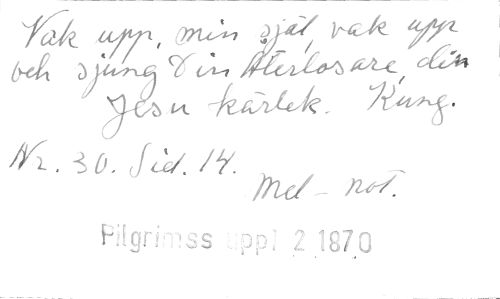 Vak upp, min själ, vak upp
och sjung Din Återlösare, din
Jesu kärlek. Kung.
Nr. 30. Sid. 14.
Mel-not.
Pilgrimss uppl 2 1870